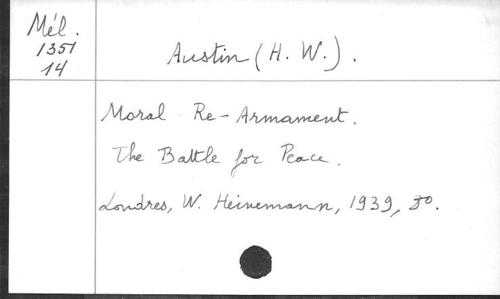 Mél.
1351
14
Austin (H. W.).
Moral Re-Armament.
The Battle for Peace.
Londres, W. Heinemann, 1939, 8o.